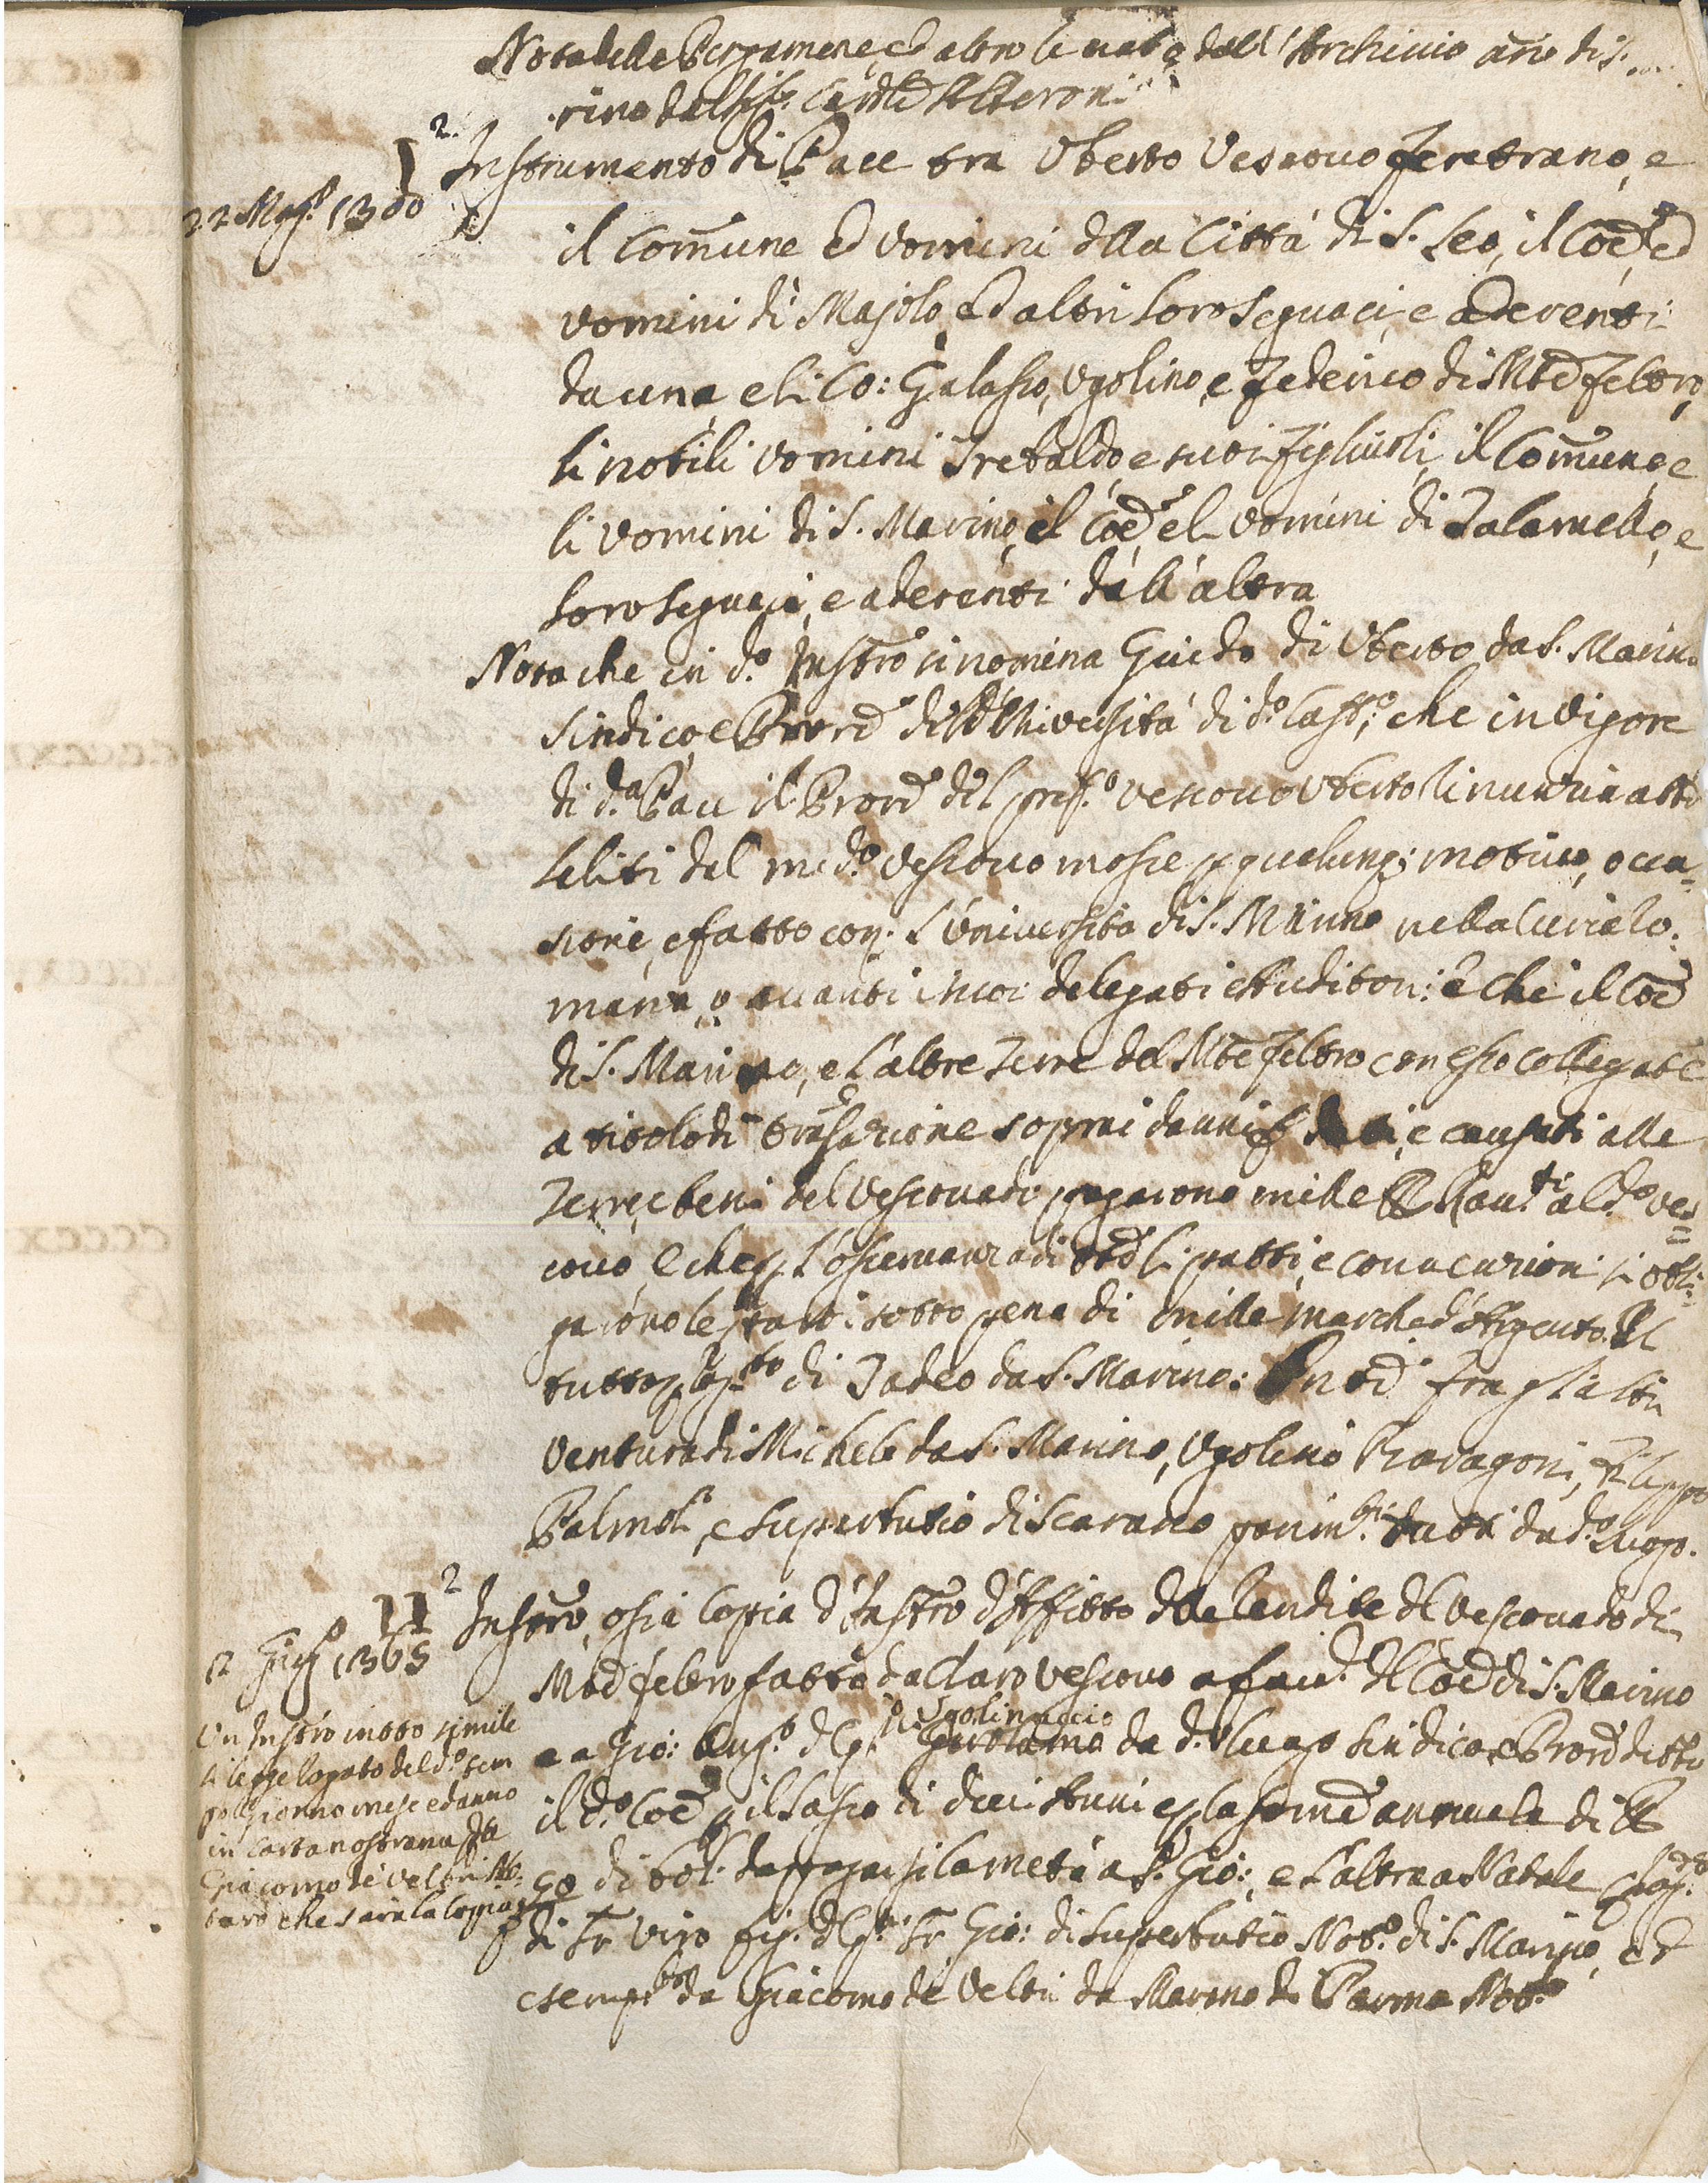 Nota delle Pergamene, ed altro levate dall'Archivio
rino dal Sig.
22 Mag.o 1300
I
2. Instrumento di Pace tra Uberto Vescovo Feretrano, e
il Comune ed Vomini della Città di S. Leo, il Coe, ed
Vomini di Majolo, ed altri loro Seguaci, e aderenti
da una, e li Co: Galasso, Ugolino, e Federico di Mte Feltro,
li nobili Vomini Tebaldo e suoi Figliuoli, il Comune, e
li Vomini di S. Marino, il Coe, e li Vomini di Talamello, e
loro Seguaci, e aderenti dall'altra
Nota che in d.o Instro si nomina Guido di Uberto da S. Marino
Sindico, e Prore dell'Università di d.o Cast.o, che in vigore
di d.a Pace il Prore del pref.o Vescovo Uberto rinunzia a tte
le liti dal med.o Vescovo mosse p qualunq; motivo, occa=
sione, e fatto con. l'Università di S. Marino nella Curia Ro=
mana, o avanti i suoi delegati e Auditori: e che il Coe
di S. Marino, e l'altre Terre del Mte Feltro con esso collegate
a titolo di transazione sopra i danni dati, e causati alle
Terre, e beni del Vescovado pagarono mille Rav.ti al d.o Ves=
covo, e che p l'osservanza di tte li patti, e convenzioni si obli=
garono le parti sotto pena di mille marche d'Argento. Il
tutto p Rog.to di Tadeo da S. Marino: Pnti fra gli altri
Ventura di Michele da S. Marino, Ugolino Pravagoni, Filippo
Palmoli, e Supertutio di Scarano parim.ti tutti da d.o Luogo.
12 Giug.o 1365
II
2 Instro, osia Copia d'Instro d'Affitto delle Rendite del Vescovado di
Mte Feltro fatto da Claro Vescovo a fav.e del Coe di S. Marino
e a Gio: di Ugolinuccio da d.o luogo Sindico, e Prore di tto
il d.o Coe p il lasso di dieci Anni e p la some annuale di
90 di Bol. da pagarsi la metà a S. Gio:, e l'altra a Natale p Rog.o
di Sr Viro fig. del q. Sr Gio: di Supertutio Not.o di S. Marino, ed
esempl.o da Giacomo de Veltri da Marano di Parma Not.o
Un Instro in tto simile
si legge rogato del d.o tem
po Giorno mese ed anno
in carta nostrana da
Giacomo de Veltri No=
taro che sarà la copia